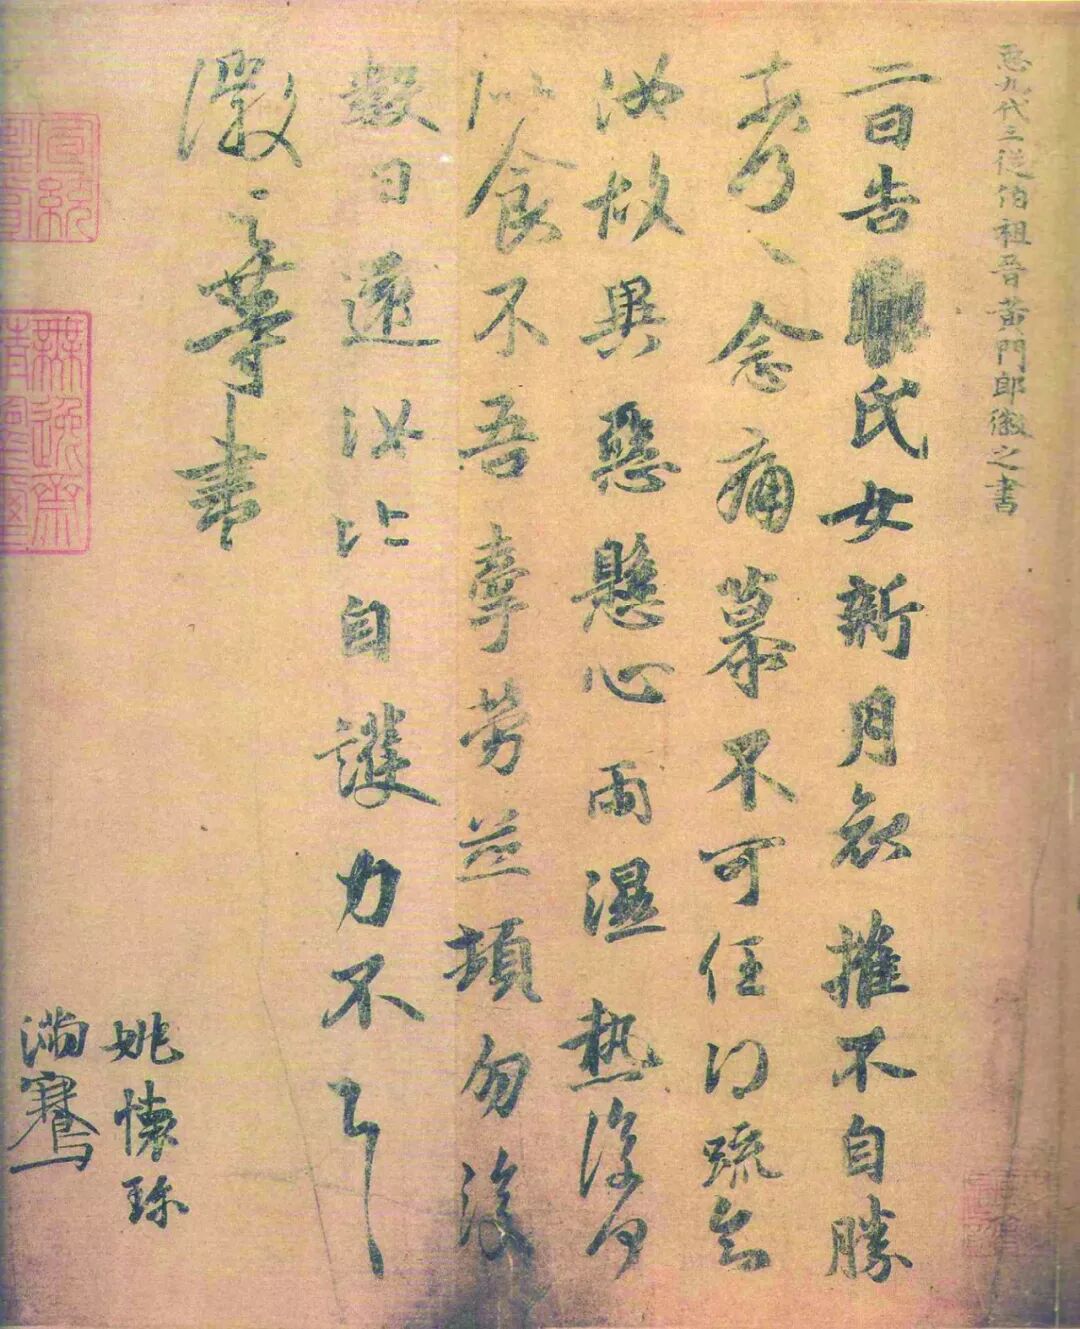 𢘑九代三從伯祖晉黃門郎徽之書
二日告氏女新月哀摧不自勝
奈何〻〻念痛慕不可任得疏知
汝故異惡懸心雨濕熱復何
似食不吾牽勞並頓勿復
數日還汝比自護力不具
徽之等書
姚懷珍
滿騫
宣統
無逸齋
精鑒璽